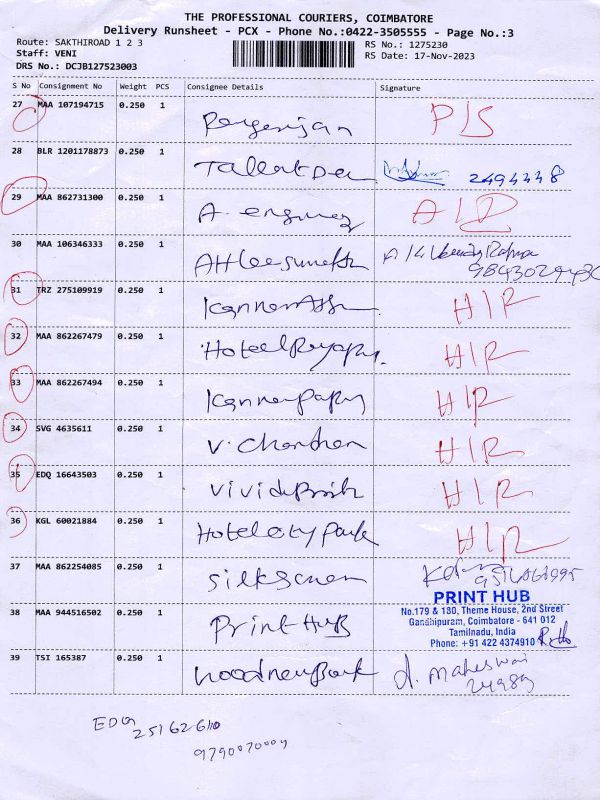 THE PROFESSIONAL COURIERS, COIMBATORE
Delivery Runsheet - PCX - Phone No.:0422-3505555 - Page No.:3
Route: SAKTHIROAD 1 2 3
Staff: VENI
DRS No.: DCJB127523003
RS No.: 1275230
RS Date: 17-Nov-2023
S No Consignment No Weight PCS Consignee Details Signature
27 MAA 107194715 0.250 1
28 BLR 1201178873 0.250 1 2494448
29 MAA 862731300 0.250 1
30 MAA 106346333 0.250 1
31 TRZ 275109919 0.250 1 HIR
32 MAA 862267479 0.250 1 HIR
33 MAA 862267494 0.250 1 HIR
34 SVG 4635611 0.250 1 V. Chenthan HIR
35 EDQ 16643503 0.250 1 HIR
36 KGL 60021884 0.250 1 Hotel City Park HIR
37 MAA 862254085 0.250 1 Silkscreen
38 MAA 944516502 0.250 1 Print Hub
PRINT HUB
No.179 & 180, Theme House, 2nd Street
Gandhipuram, Coimbatore - 641 012
Tamilnadu, India
Phone: +91 422 4374910
39 TSI 165387 0.250 1 d. maheswari
24989
EDQ
25162610
9790070009